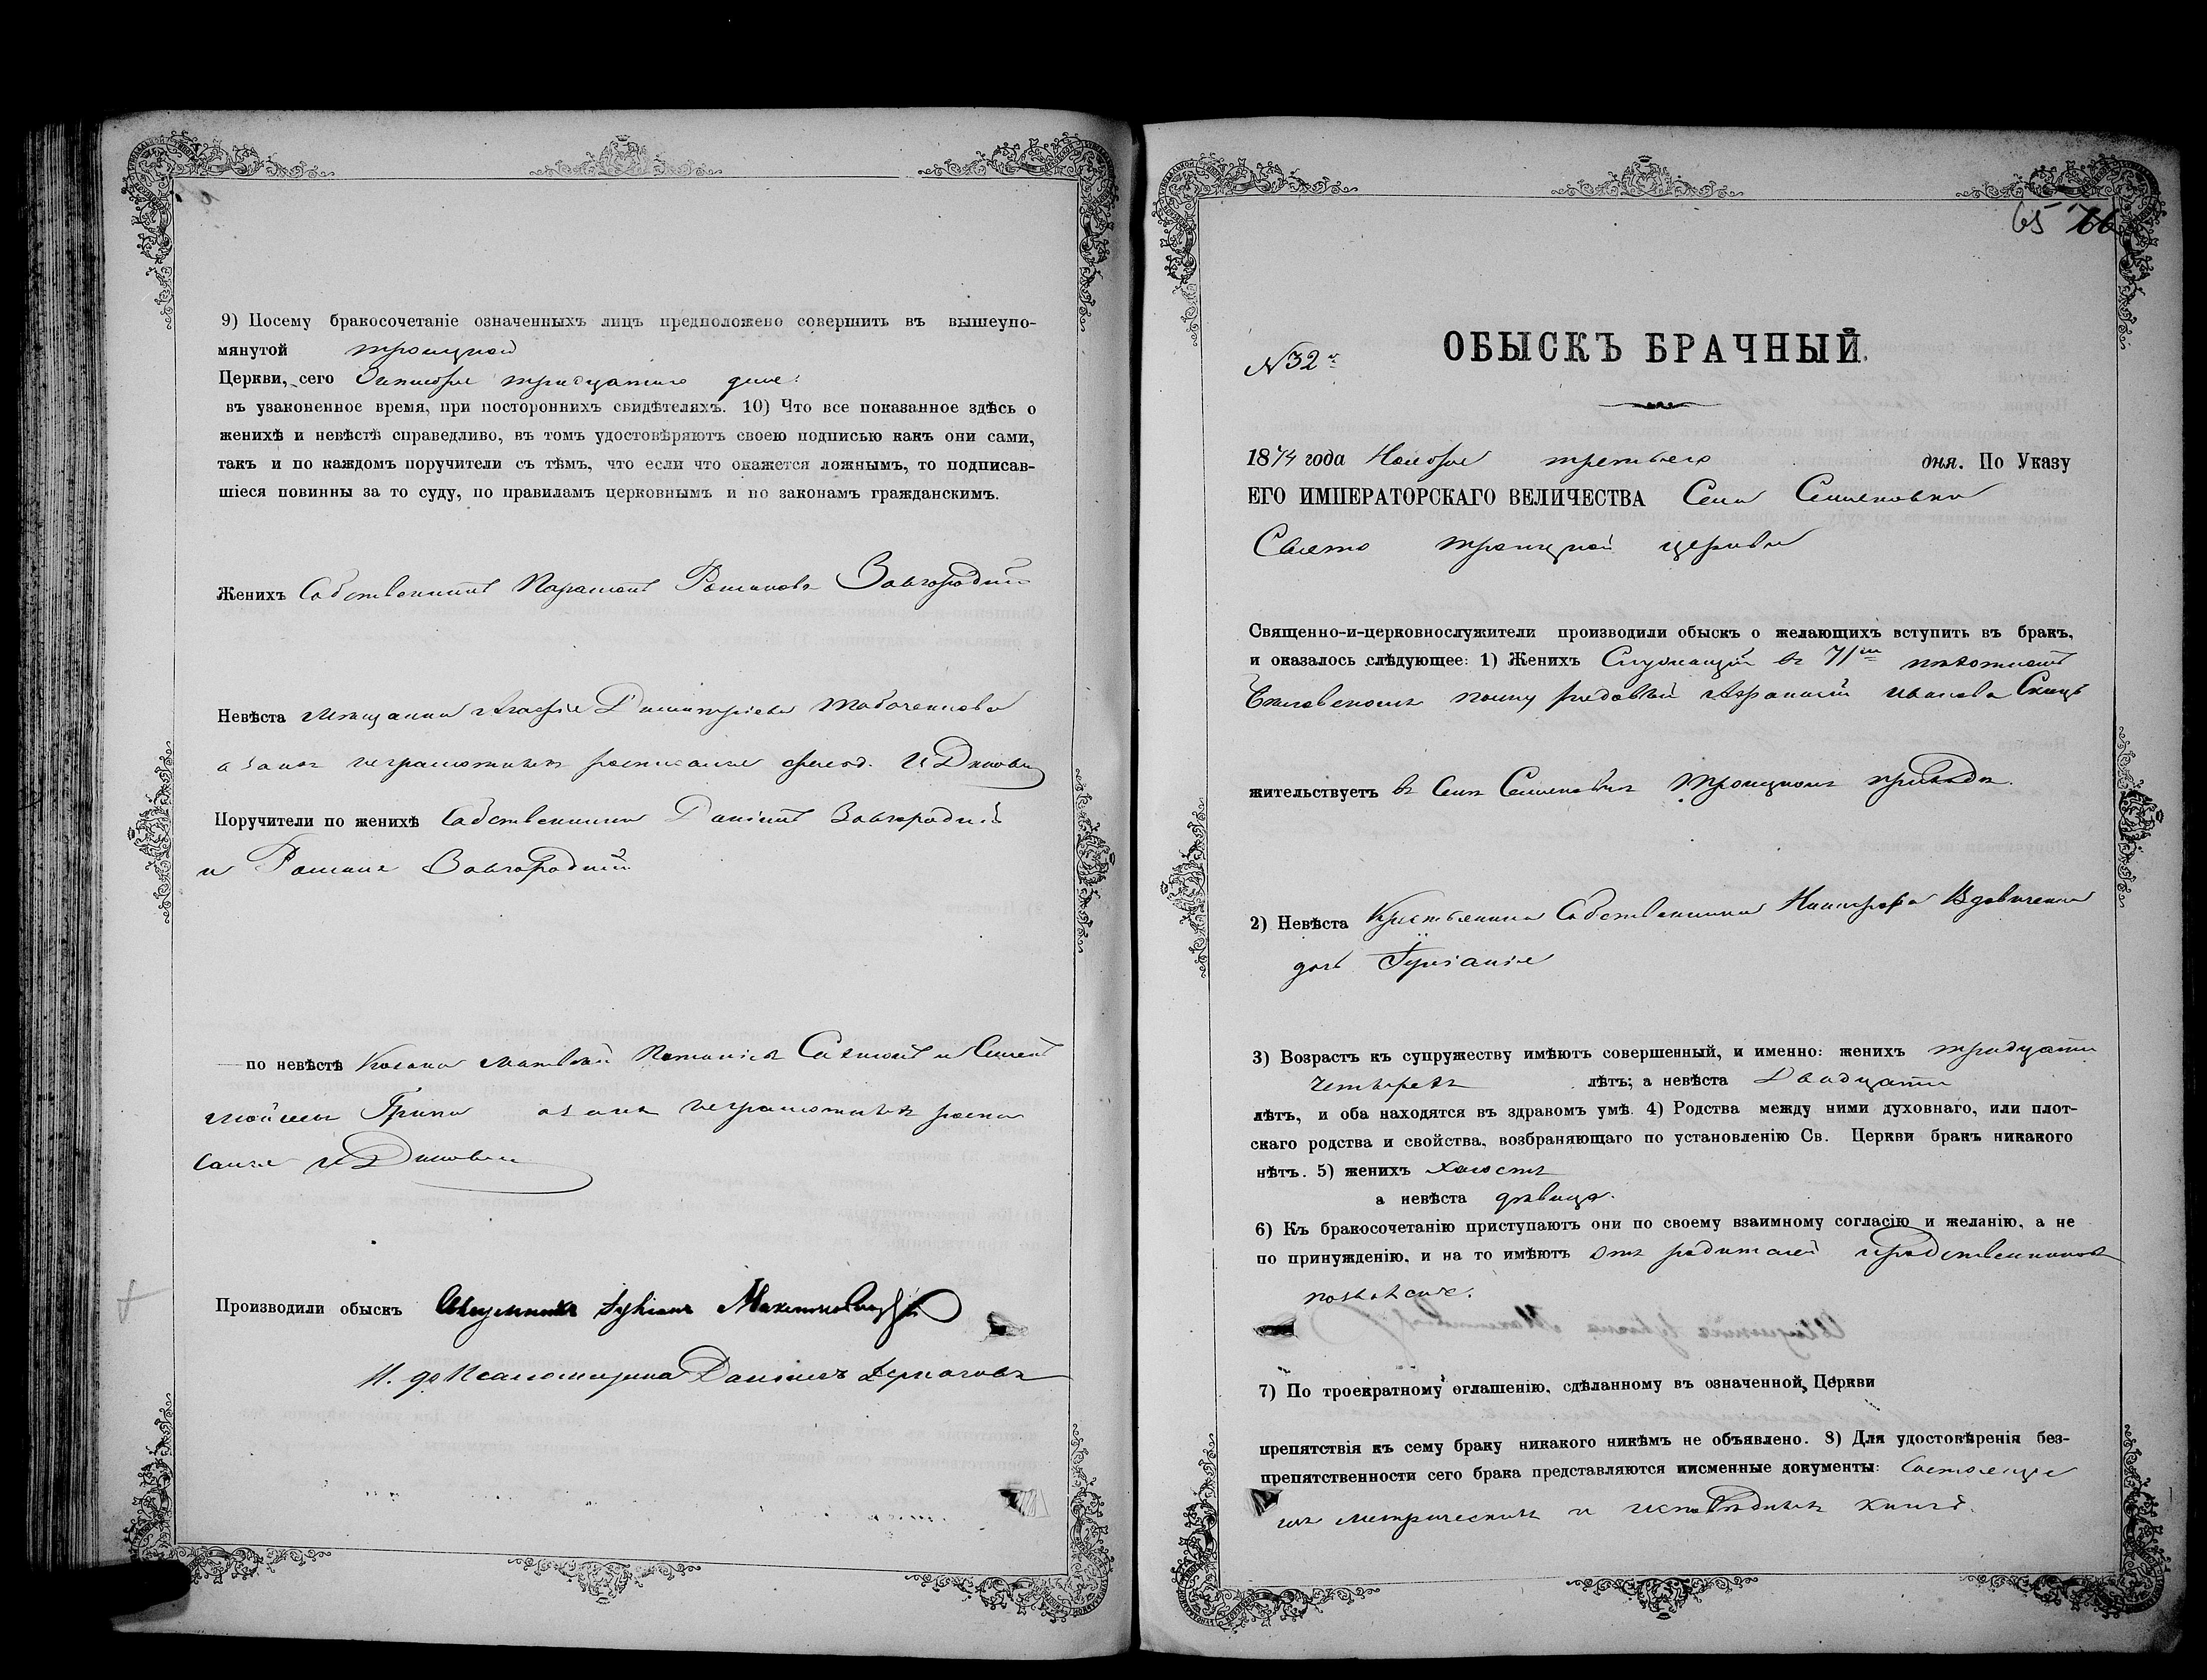 9) Посему бракосочетаніе означенныхъ лицъ предположено совершить въ вышеупо-
мянутой Троицкой
Церкви, сего Октября тридцатаго дня
въ узаконенное время, при постороннихъ свидѣтеляхъ. 10) Что все показанное здѣсь о
женихѣ и невѣстѣ справедливо, въ томъ удостовѣряютъ своею подписью какъ они сами,
такъ и по каждомъ поручители съ тѣмъ, что если что окажется ложнымъ, то подписав-
шіеся повинны за то суду, по правиламъ церковнымъ и по законамъ гражданскимъ.
Женихъ Собственникъ Парамонъ Романовъ Завгородній
Невѣста мѣщанка Агафія Димитріева
а за нихъ неграмотныхъ росписался
Поручители по женихѣ Собственники Даніилъ Завгородній
и Романъ Завгородній
по невѣстѣ Козаки Матвѣй
Грипа а за нихъ неграмотныхъ роспи
сался
Производили обыскъ Священникъ
И. д. Псаломщика
65 76
№ 32й
ОБЫСКЪ БРАЧНЫЙ.
1874 года Ноября третьяго дня. По Указу
ЕГО ИМПЕРАТОРСКАГО ВЕЛИЧЕСТВА Села Семеновки
Свято Троицкой церкви
Священно-и-церковнослужители производили обыскъ о желающихъ вступить въ бракъ,
и оказалось слѣдующее: 1) Женихъ Служащій въ 71м пѣхотномъ
Бѣлевскомъ полку рядовый Афанасій Ивановъ
жительствуетъ въ Селѣ Семеновкѣ Троицкомъ приходѣ.
2) Невѣста Крестьянина Собственника Никифора Вдовиченка
дочь Іуліанія
3) Возрастъ къ супружеству имѣютъ совершенный, и именно: женихъ тридцати
четырехъ лѣтъ; а невѣста Двадцати
лѣтъ, и оба находятся въ здравомъ умѣ. 4) Родства между ними духовнаго, или плот-
скаго родства и свойства, возбраняющаго по установленію Св. Церкви бракъ никакого
нѣтъ. 5) женихъ холостъ
а невѣста дѣвица.
6) Къ бракосочетанію приступаютъ они по своему взаимному согласію и желанію, а не
по принужденію, и на то имѣютъ отъ родителей и родственниковъ
позволеніе.
7) По троекратному оглашенію, сдѣланному въ означенной Церкви
препятствія къ сему браку никакого никѣмъ не объявлено. 8) Для удостовѣренія без-
препятственности сего брака представляются писменные документы: Состоящіе
въ метрическихъ и исповѣдныхъ книгъ.